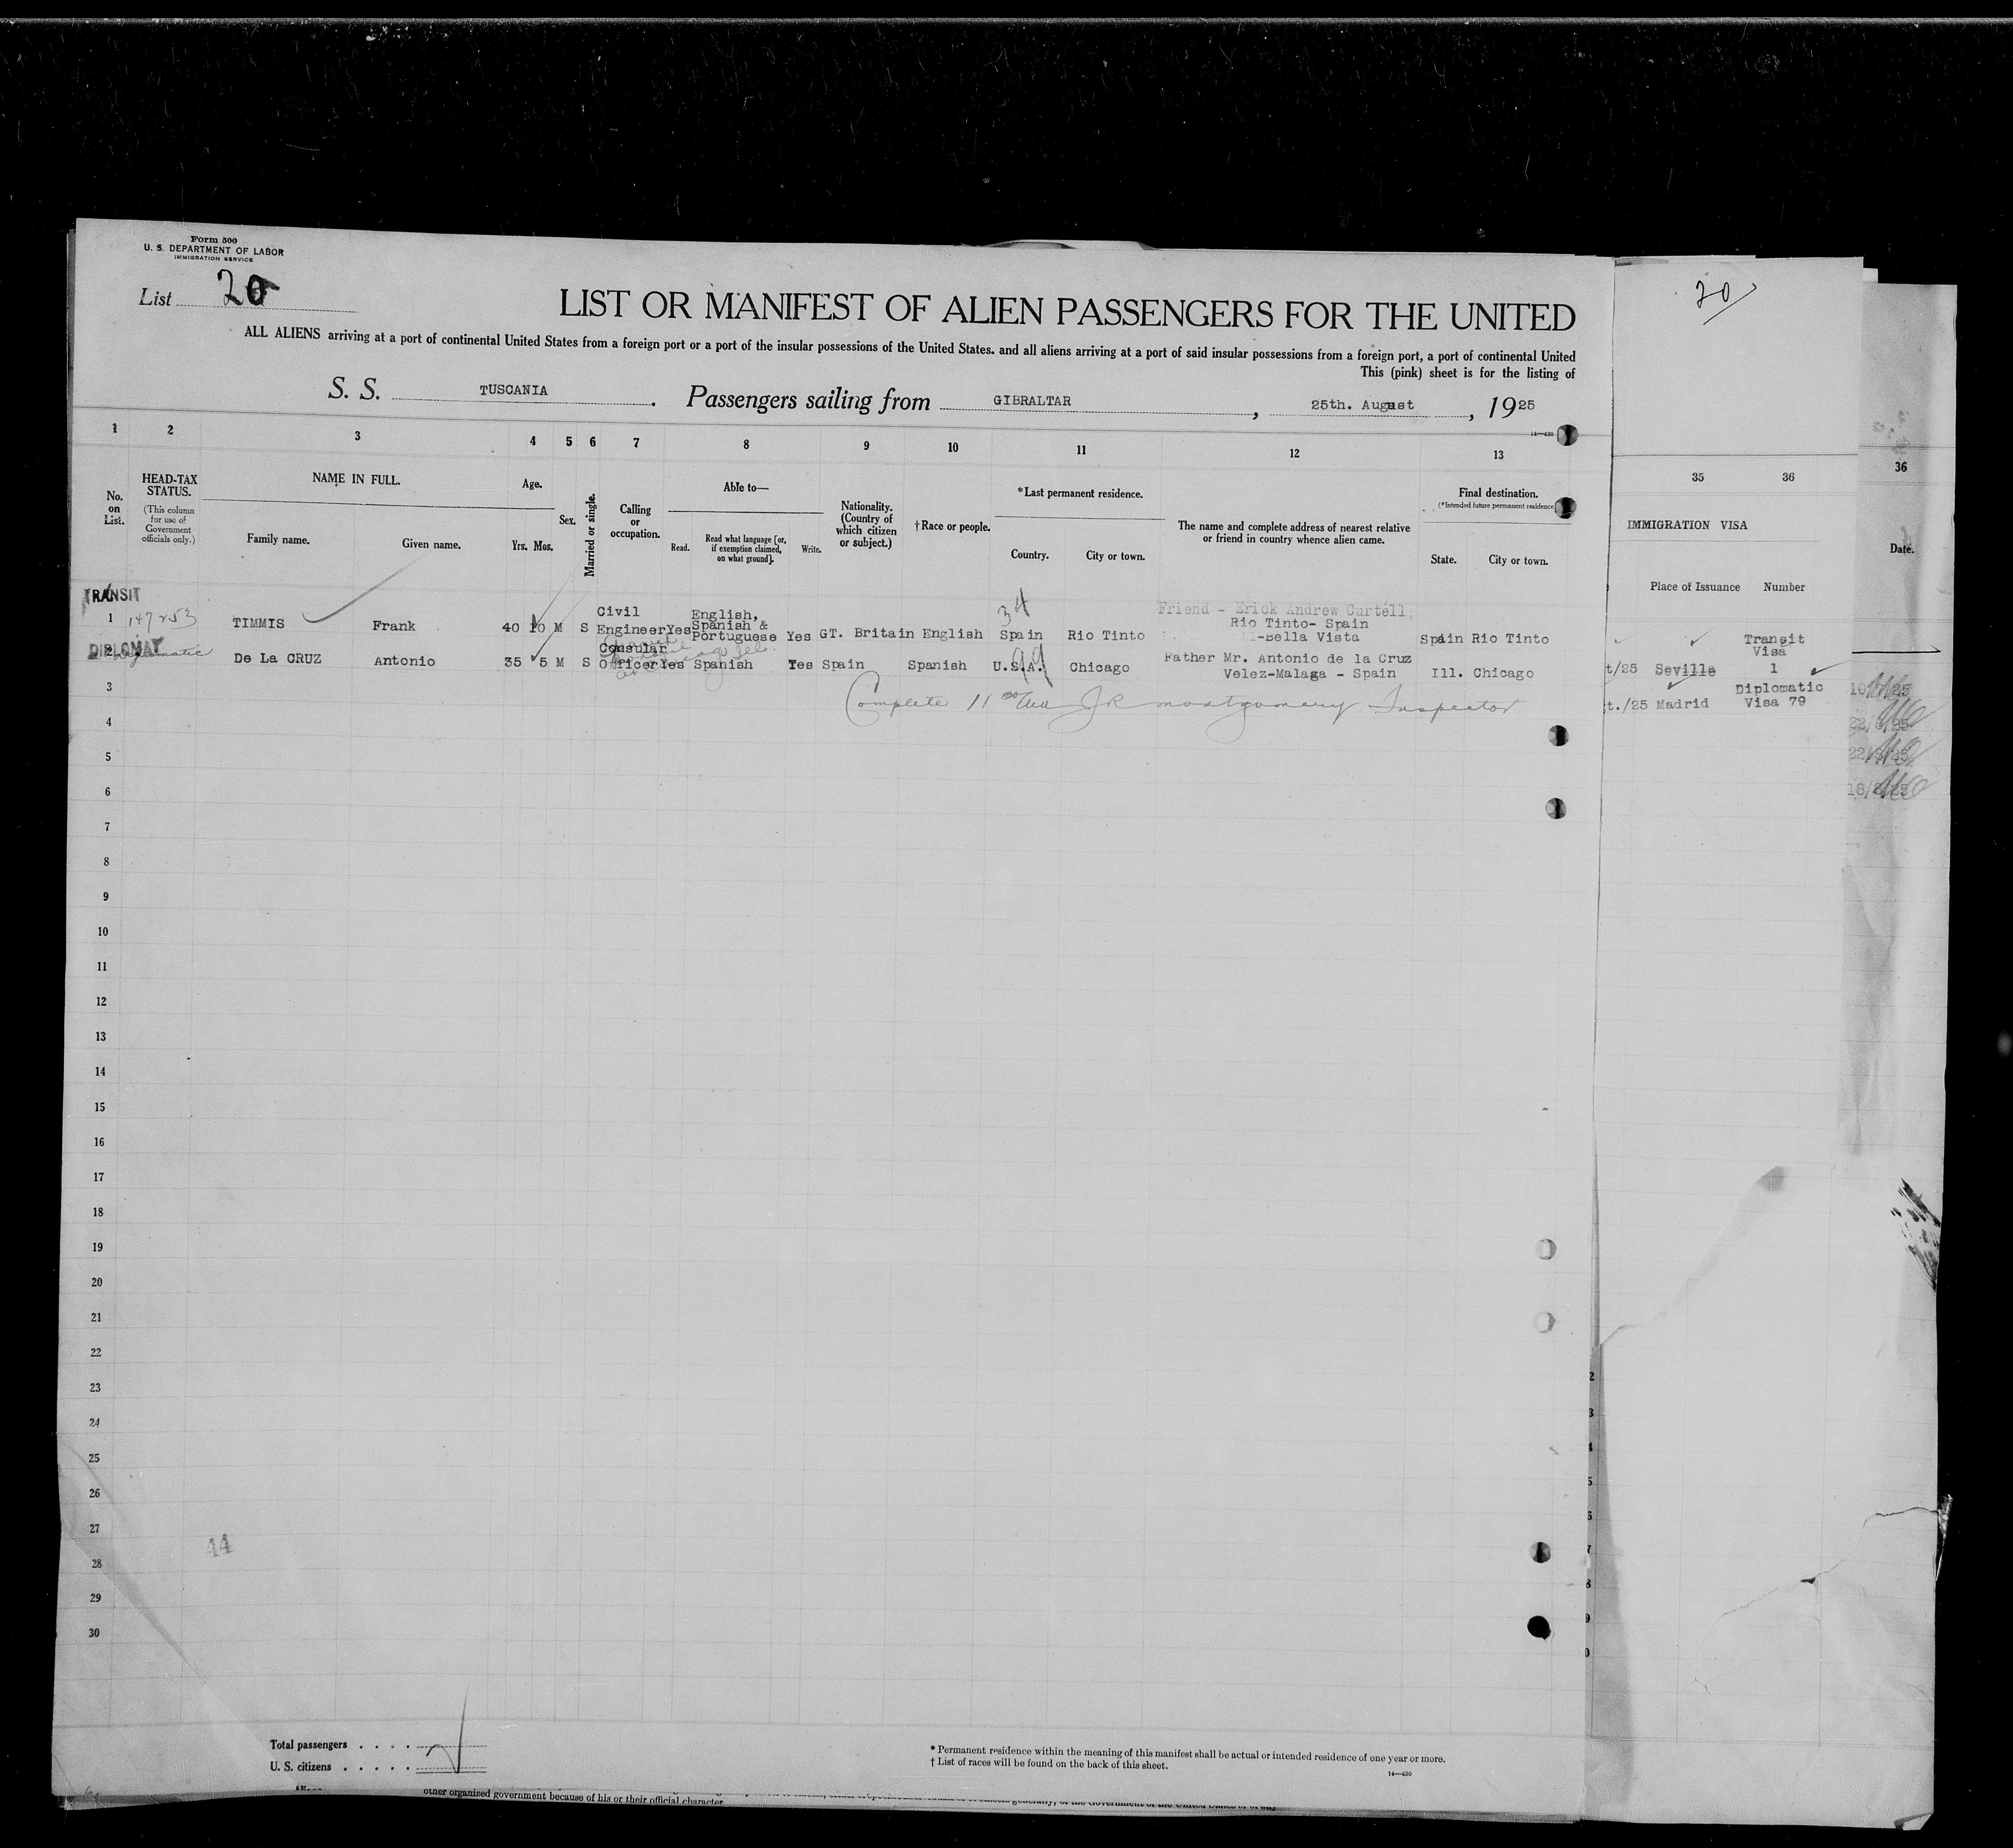 Form 500
U. S. DEPARTMENT OF LABOR
IMMIGRATION SERVICE
List 20
20
LIST OR MANIFEST OF ALIEN PASSENGERS FOR THE UNITED
ALL ALIENS arriving at a port of continental United States from a foreign port or a port of the insular possessions of the United States, and all aliens arriving at a port of said insular possessions from a foreign port, a port of continental United
This (pink) sheet is for the listing of
S. S. TUSCANIA. Passengers sailing from GIBRALTAR, 25th. August, 1925
14—430
1 2 3 4 5 6 7 8 9 10 11 12 13 35 36 36
No. on List.
HEAD-TAX STATUS.
(This column for use of Government officials only.)
NAME IN FULL.
Family name. Given name.
Age.
Yrs. Mos.
Sex.
Married or single.
Calling or occupation.
Able to—
Read. Read what language [or, if exemption claimed, on what ground]. Write.
Nationality. (Country of which citizen or subject.)
†Race or people.
*Last permanent residence.
Country. City or town.
The name and complete address of nearest relative or friend in country whence alien came.
Final destination.
(*Intended future permanent residence
State. City or town.
IMMIGRATION VISA
Place of Issuance Number
Date.
TRANSIT
1 TIMMIS Frank 40 10 M S Civil Engineer Yes English, Spanish & Portuguese Yes GT. Britain English Spain Rio Tinto Friend - Erick Andrew Curtell, Rio Tinto- Spain -Bella Vista Spain Rio Tinto
34
DIPLOMAT
2 De La CRUZ Antonio 35 5 M S Consular Officer Yes Spanish Yes Spain Spanish U.S.A. Chicago Father Mr. Antonio de la Cruz Velez-Malaga - Spain Ill. Chicago
99
Transit Visa
t/25 Seville 1
Diplomatic
t./25 Madrid Visa 79
Complete 11 00 AM J R Montgomery Inspector
3
4
5
6
7
8
9
10
11
12
13
14
15
16
17
18
19
20
21
22
23
24
25
26
27
28
29
30
44
Total passengers . . . .
U. S. citizens . . . . .
* Permanent residence within the meaning of this manifest shall be actual or intended residence of one year or more.
† List of races will be found on the back of this sheet.
14—430
other organized government because of his or their official character